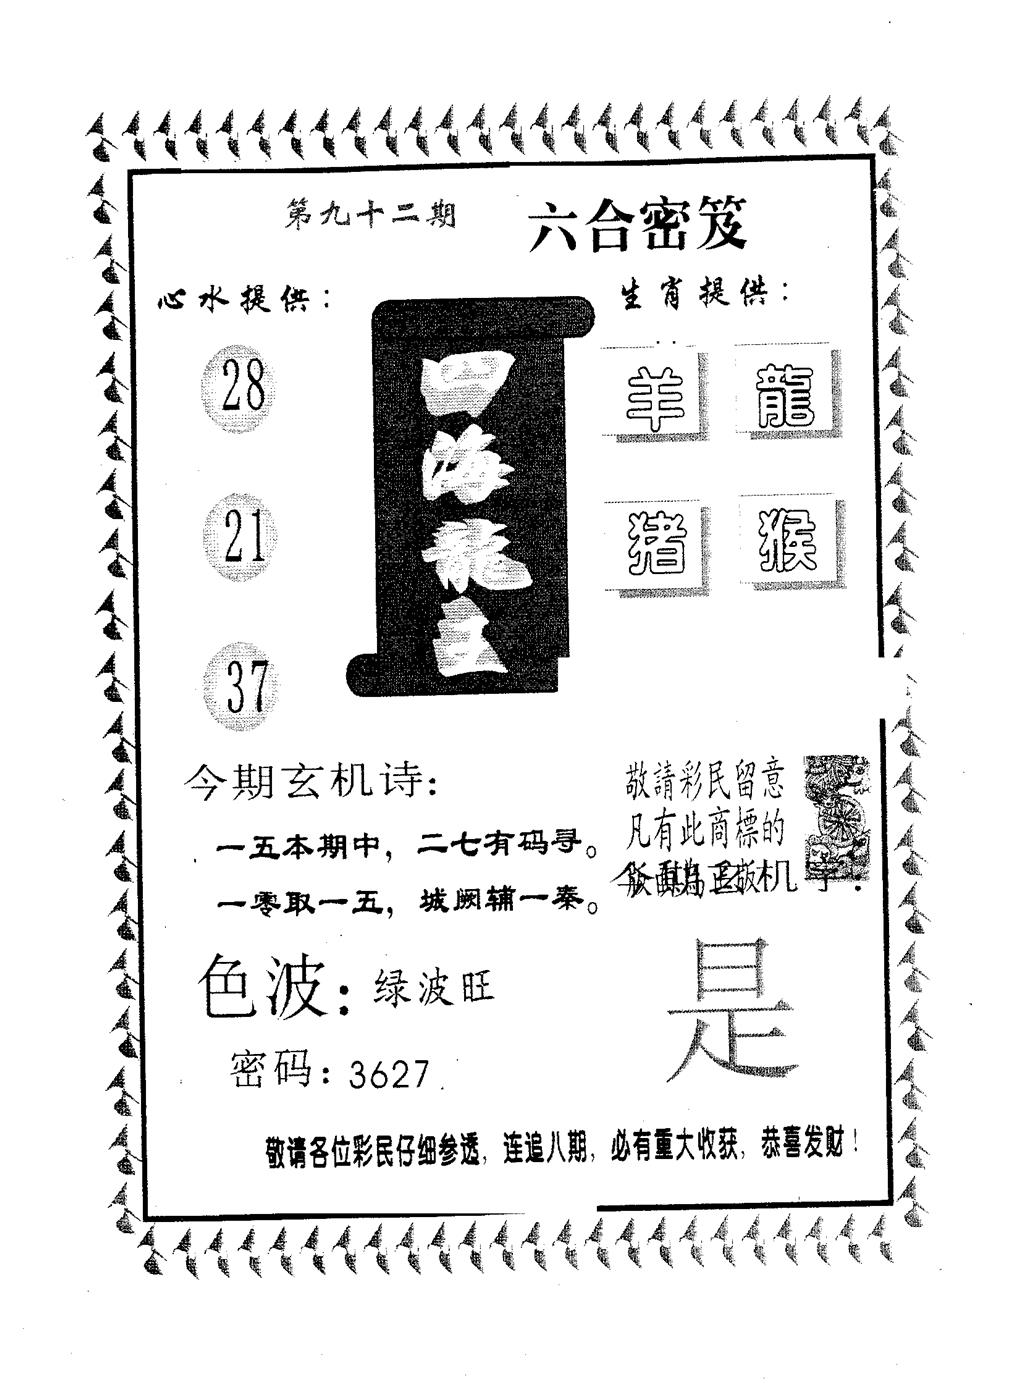 第九十二期
六合密笈
心水提供：
28
21
37
四海龍王
生肖提供：
羊 龍
猪 猴
今期玄机诗：
一五本期中，二七有码寻。
一零取一五，城阙辅一秦。
敬請彩民留意
凡有此商標的
机字：
是
色波：绿波旺
密码：3627
敬请各位彩民仔细参透，连追八期，必有重大收获，恭喜发财！